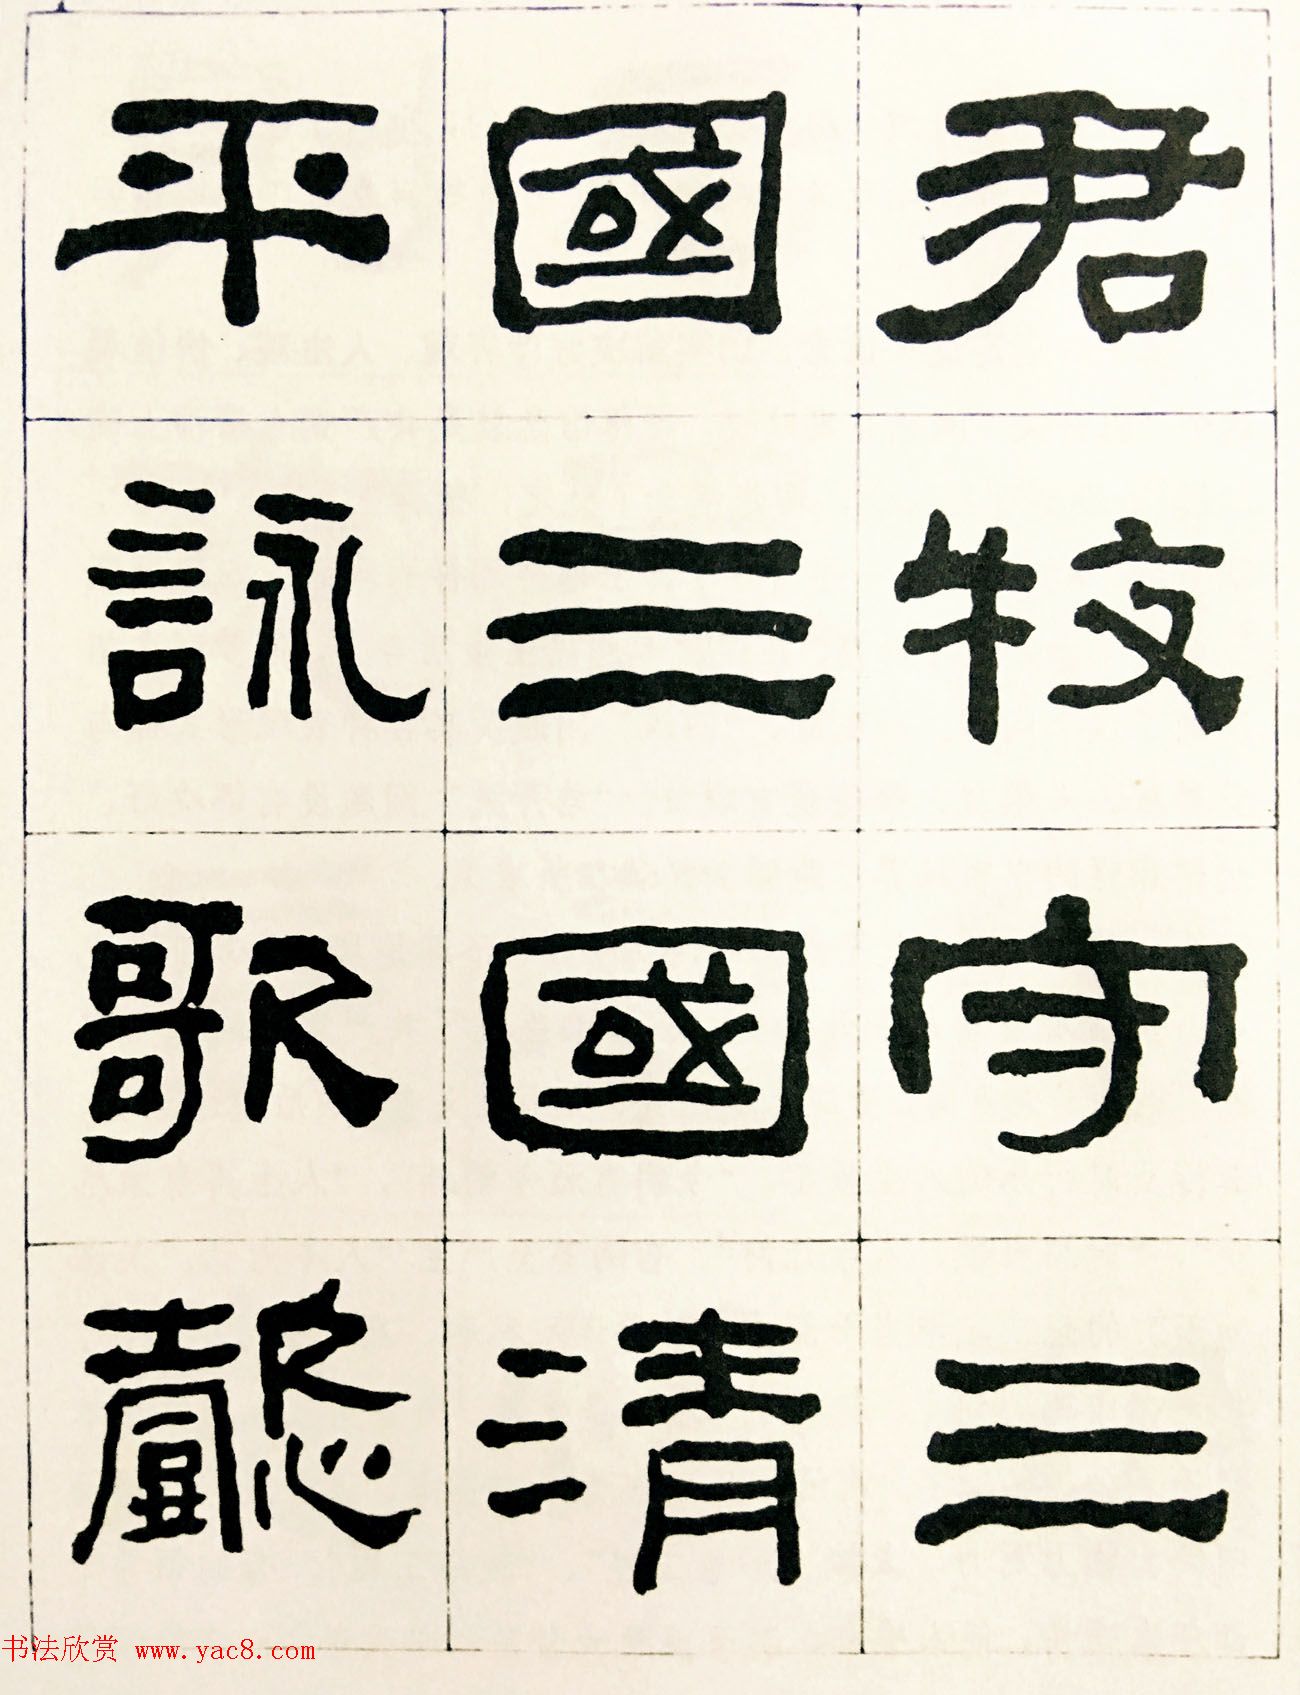 君牧守三
國三國清
平詠歌懿
书法欣赏 www.yac8.com